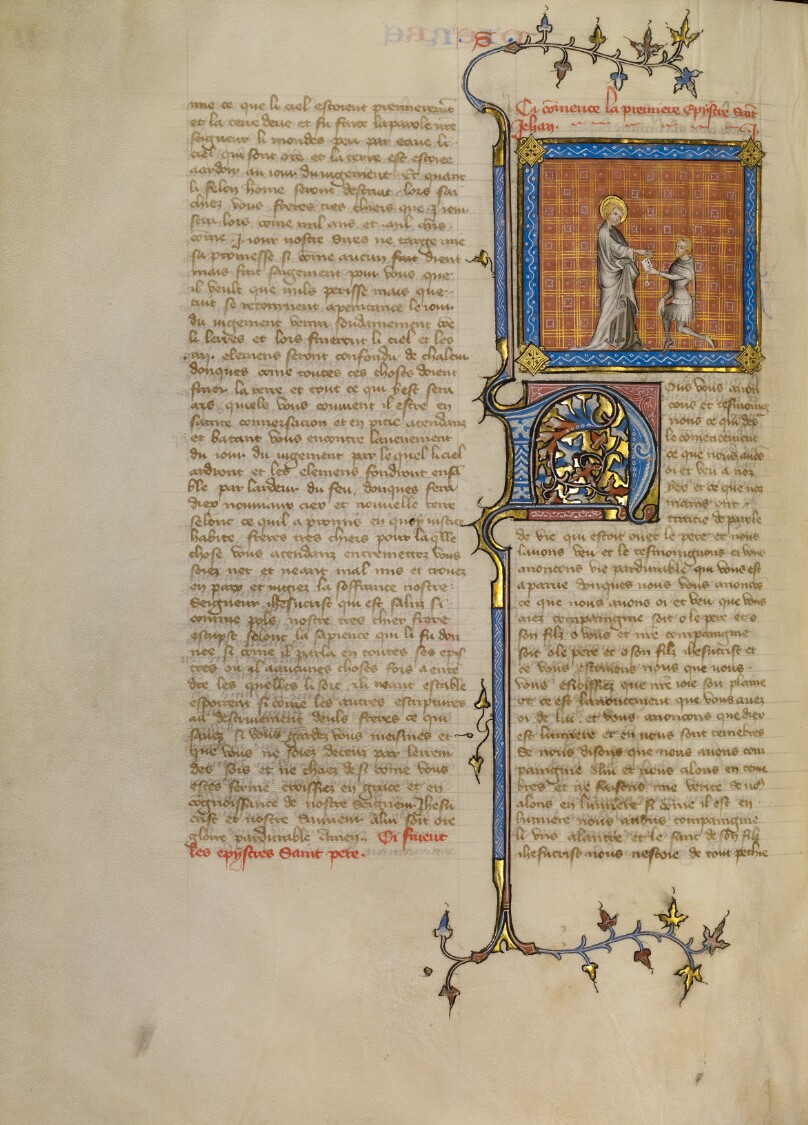 .S.
me ce que li ciel estoient premierement
et la terre deue et fu faite la parole nre
seigneur li mondes peri par eaue li
ciel qui sont ore et la terre est estoire
a ardoir au jour du jugement. Et quant
li felon home seront destruit. lors sai
chiez vous freres tres chiers que .j. jour
sera lors come mil ans. et mil ans
come .j. jour nostre sires ne targe mie
sa promesse si come aucun font dient
mais fait saigement pour vous que
il veult que nuls perisse mais que
tuit se retournent a penitance le jour
du jugement venra soudainement
li lerres et lors fineront li ciel et les
.iiij. elemens seront confondu de chaleur
donques come toutes ces choses doient
finer la terre et tout ce qui y est sera
ars. quele vous convient il estre en
sainte conversacion et en pitie atendanz
et hatant vous encontre lavenement
du jour du jugement par le quel li ciel
ardront et les elemens fondront ensam
ble par lardeur du feu. donques fera
diex nouviaux ciex et nouvelle terre
selonc ce quil a promis en que justice
habite. freres tres chiers pour la qlle
chose vous atendanz entremetez vous
soiez net et neant mal mis et trovez
en paix et jugiez la soffrance nostre
Seigneur jhesucrist qui est salus si
comme pols nostre tres chier frere
escript selonc la sapience qui li fu don
nee si come il parla en toutes ses epis
tres ou il a aucunes choses fors a enten
dre les quelles li sot et li neant estable
esportent si come les autres escriptures
au destruiement deuls freres ce qui
sauez si vous gardez vous meismes et
que vous ne soiez deceuz par lerreur
des fols et ne chaez de si come vous
estes ferme. croissiez en grace et en
cognoissance de nostre seigneur jhesu
crist et nostre sauveur. a lui soit ore
gloire pardurable amen. Ci finent
les epystres Saint pere.
Ci comence la premiere epystre saint
Jehan. .j.
Nous vous anon
cons et tesmoing
nons ce qui des
le comencement
ce que nous auons
oi et veu a noz
yex et ce que noz
mains ont
traitie de parole
de vie qui estoit ouec le pere et nous
lauons veu et le tesmoignons et vous
anoncons vie pardurable qui vous est
aparue donques nous vous anoncons
ce que nous auons oi et veu que vous
aiez compaignie soit o le pere et o
son filz o vous et nre compaignie
soit o le pere et o son filz jhesucrist et
ce vous escriuons nous que nous
vous esioissiez que nre joie soit plaine
et ce est lanoncement que vous auez
oi de lui. et vous anoncons que diex
est lumiere et en nous sont tenebres
Se nous disons que nous auons com
paingnie a lui et nous alons en tene
bres et ne faisons mie verite. se nous
alons en lumiere si come il est en
lumiere nous auons compaingnie
li uns a lautre et le sanc de son filz
jhesucrist nous nestoie de tout pechie